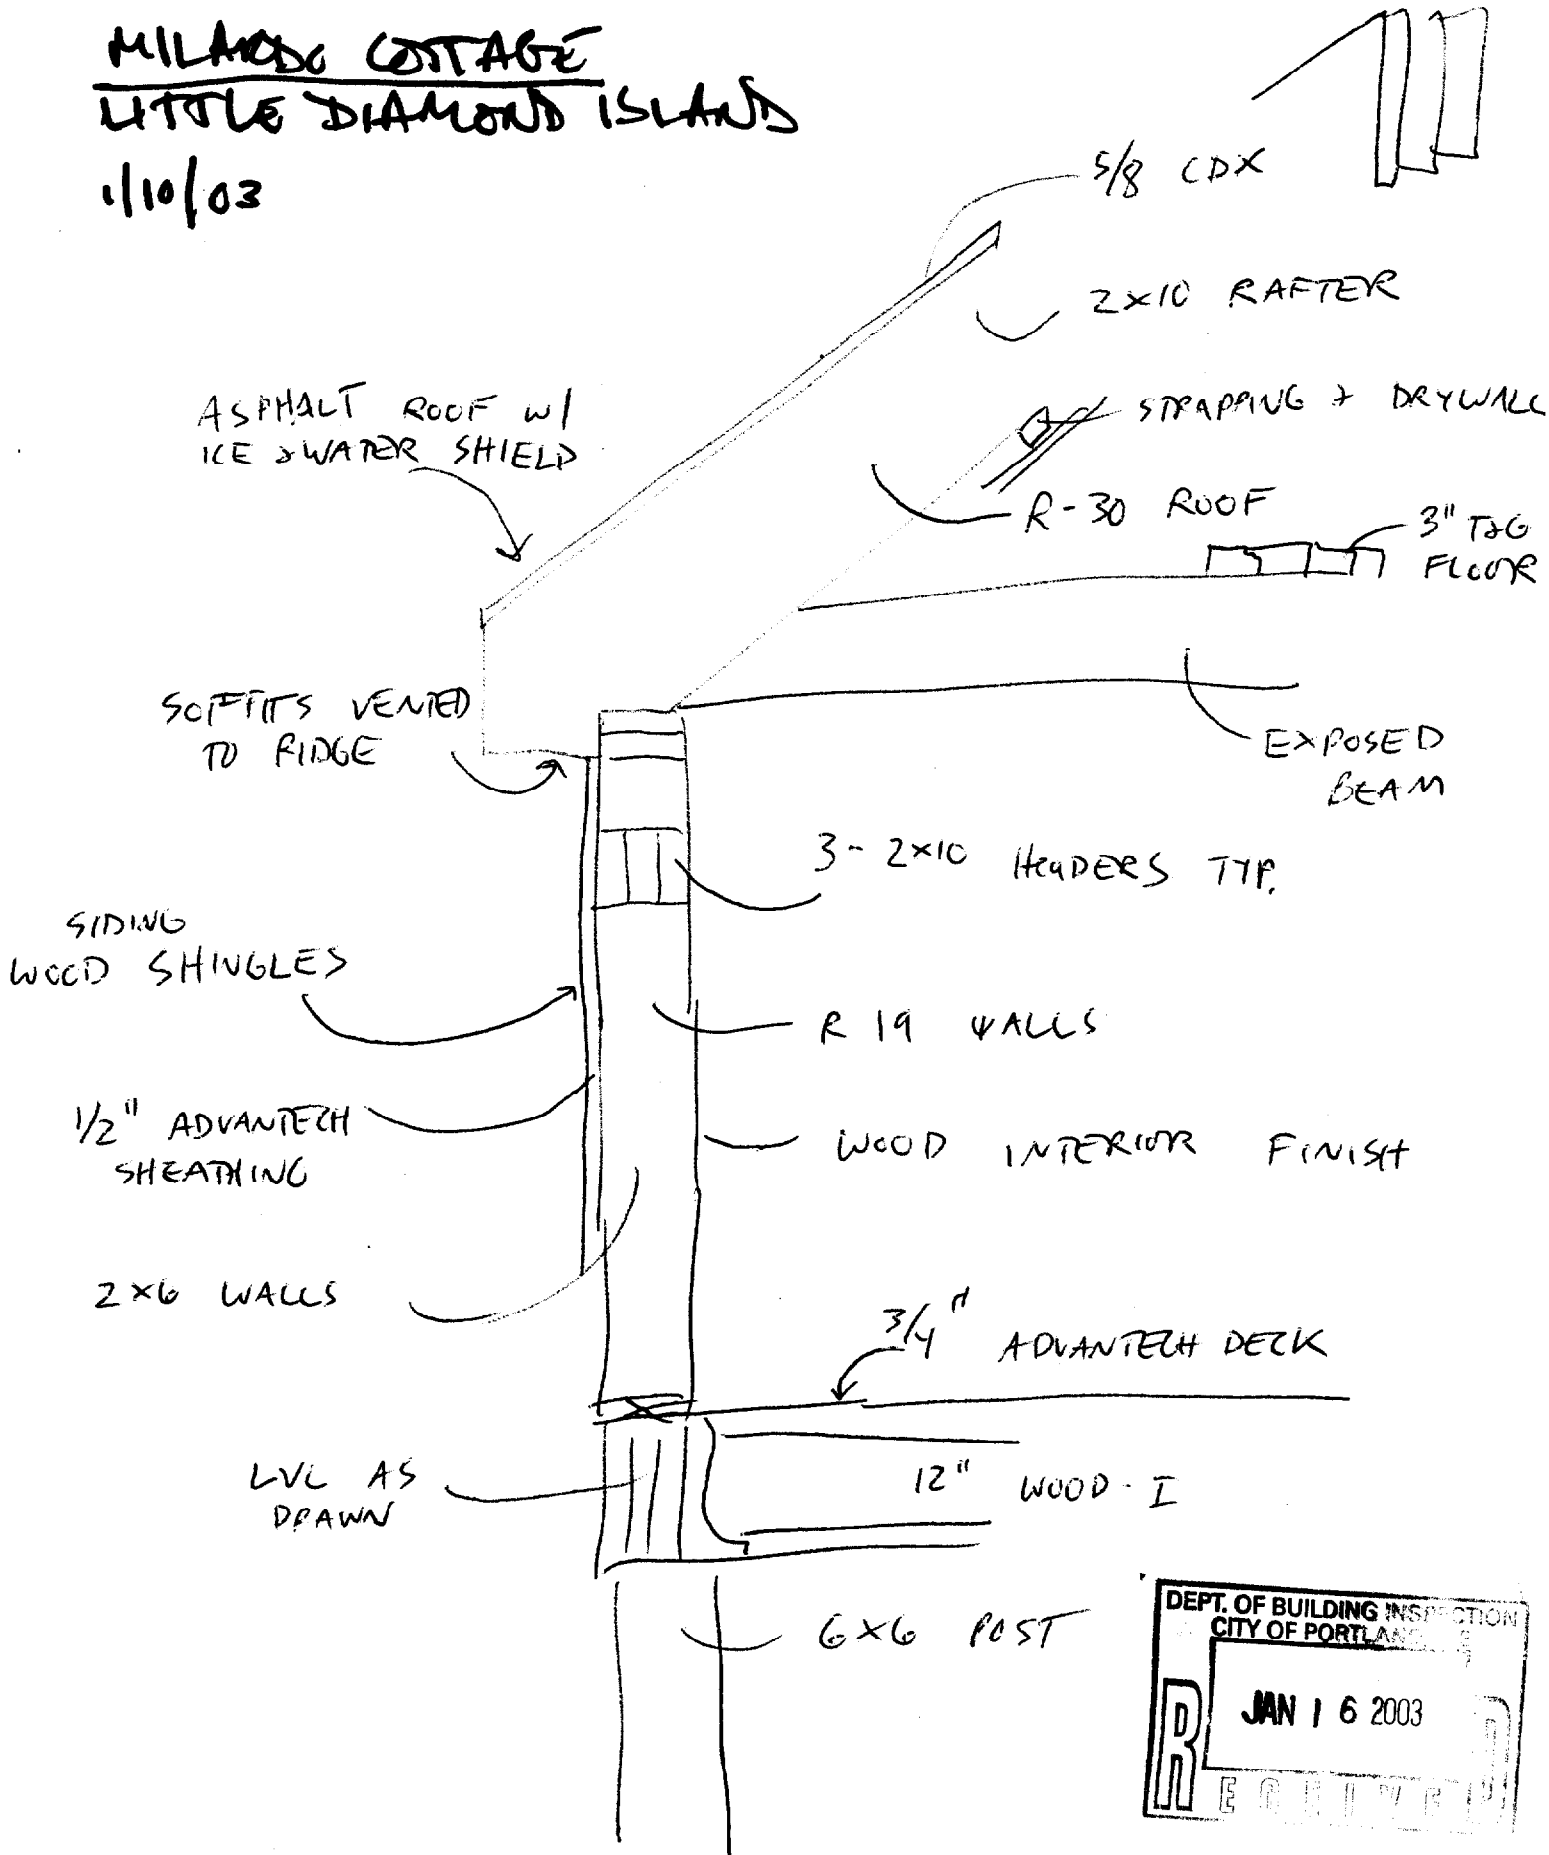 MILARDO COTTAGE
LITTLE DIAMOND ISLAND
1/10/03
5/8 CDX
2x10 RAFTER
ASPHALT ROOF W/
ICE & WATER SHIELD
STRAPPING & DRYWALL
R-30 ROOF
3" T&G
FLOOR
SOFFITS VENTED
TO RIDGE
EXPOSED
BEAM
3-2x10 HEADERS TYP.
SIDING
WOOD SHINGLES
R 19 WALLS
1/2" ADVANTECH
SHEATHING
WOOD INTERIOR FINISH
2x6 WALLS
3/4" ADVANTECH DECK
LVL AS
DRAWN
12" WOOD-I
6x6 POST
DEPT. OF BUILDING INSPECTION
CITY OF PORTLAND
JAN 16 2003
RECEIVED